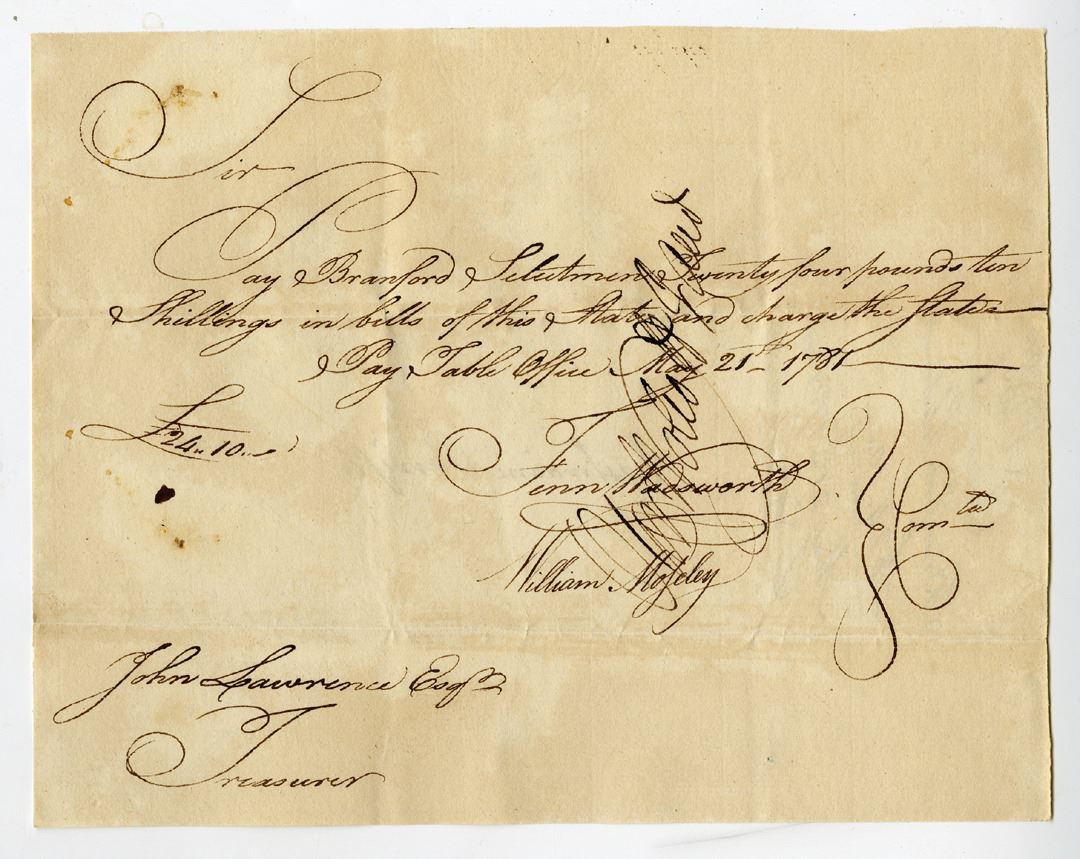 Sir
Pay Branford Selectmen Twenty four pounds ten
Shillings in bills of this State and charge the State
Pay Table Office May 21st 1781
£24.. 10..
Fenn Wadsworth
William Moseley
Comtee
John Lawrence Esqr
Treasurer